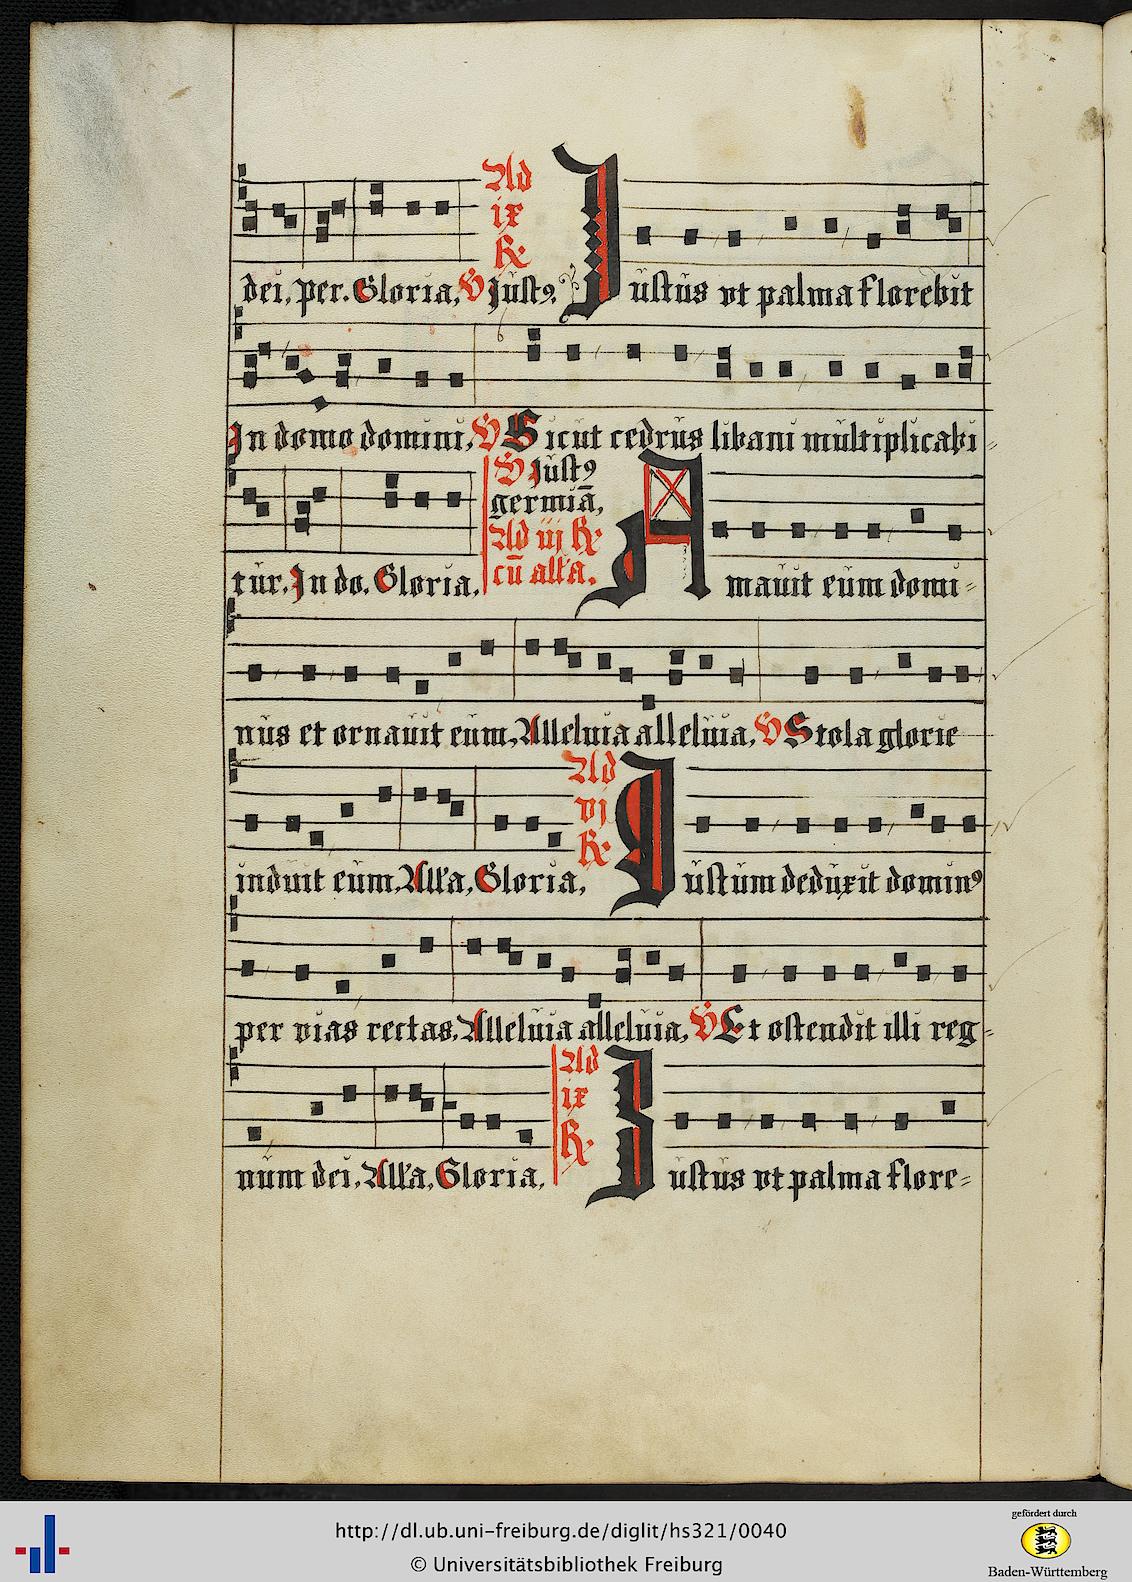 Ad
ix
R.
dei, per. Gloria, V Just9. Justus vt palma florebit
In domo domini, V Sicut cedrus libani multiplicabi=
V Just9
germiā,
Ad iij R.
cū all'a.
tur. In do. Gloria, Amauit eum domi=
nus et ornauit eum, Alleluia alleluia, V Stola glorie
Ad
vj
R.
induit eum, All'a, Gloria, Justum deduxit domin9
per vias rectas, Alleluia alleluia, V Et ostendit illi reg=
Ad
ix
R.
num dei, All'a, Gloria, Justus vt palma flore=
http://dl.ub.uni-freiburg.de/diglit/hs321/0040
© Universitätsbibliothek Freiburg
gefördert durch
Baden-Württemberg